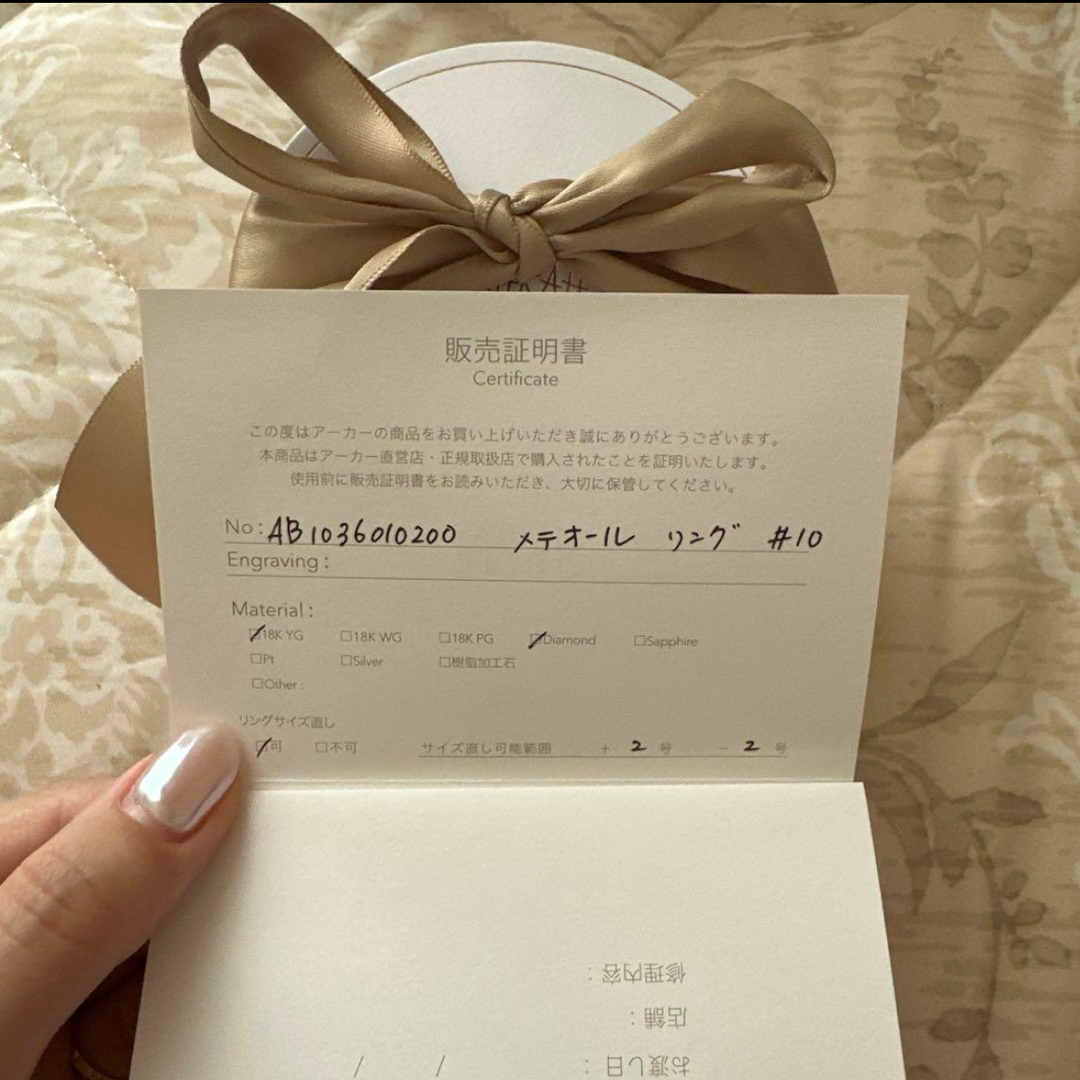 販売証明書
Certificate
この度はアーカーの商品をお買い上げいただき誠にありがとうございます。
本商品はアーカー直営店・正規取扱店で購入されたことを証明いたします。
使用前に販売証明書をお読みいただき、大切に保管してください。
No: AB1036010200 メテオール リング #10
Engraving:
Material:
☑18K YG ☐18K WG ☐18K PG ☑Diamond ☐Sapphire
☐Pt ☐Silver ☐樹脂加工石
☐Other:
リングサイズ直し
☑可 ☐不可 サイズ直し可能範囲 + 2 号 − 2 号
修理内容:
店舗:
お渡し日: / /